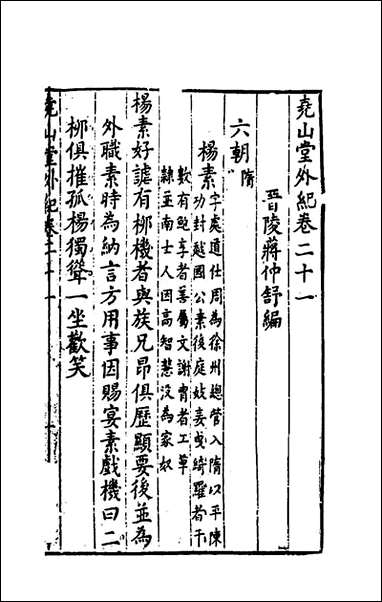 堯山堂外紀卷二十一
晉陵蔣仲舒編
六朝隋
楊素字處道仕周為徐州總管入隋以平陳
功封越國公素後庭妓妾曵綺羅者千
數有鮑亨者善屬文謝胄者工草
隸並南士人因高智慧没為家奴
楊素好謔有柳機者與族兄昂俱歷顯要後並為
外職素時為納言方用事因賜宴素戲機曰二
柳俱摧孤楊獨聳一坐歡笑
堯山堂外紀卷二十一